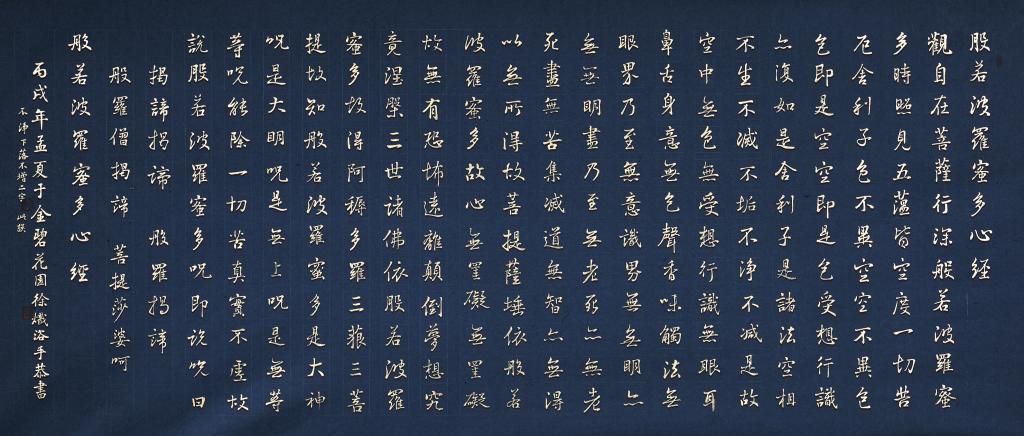 般若波羅蜜多心經
觀自在菩薩行深般若波羅蜜
多時照見五蘊皆空度一切苦
厄舍利子色不異空空不異色
色即是空空即是色受想行識
亦復如是舍利子是諸法空相
不生不滅不垢不淨不減是故
空中無色無受想行識無眼耳
鼻舌身意無色聲香味觸法無
眼界乃至無意識界無無明亦
無無明盡乃至無老死亦無老
死盡無苦集滅道無智亦無得
以無所得故菩提薩埵依般若
波羅蜜多故心無罣礙無罣礙
故無有恐怖遠離顛倒夢想究
竟涅槃三世諸佛依般若波羅
蜜多故得阿耨多羅三藐三菩
提故知般若波羅蜜多是大神
呪是大明呪是無上呪是無等
等呪能除一切苦真實不虛故
說般若波羅蜜多呪即說呪曰
揭諦揭諦 般羅揭諦
般羅僧揭諦 菩提莎婆呵
般若波羅蜜多心經
丙戌年孟夏于金碧花園徐熾洛手恭書
不淨下落不增二字